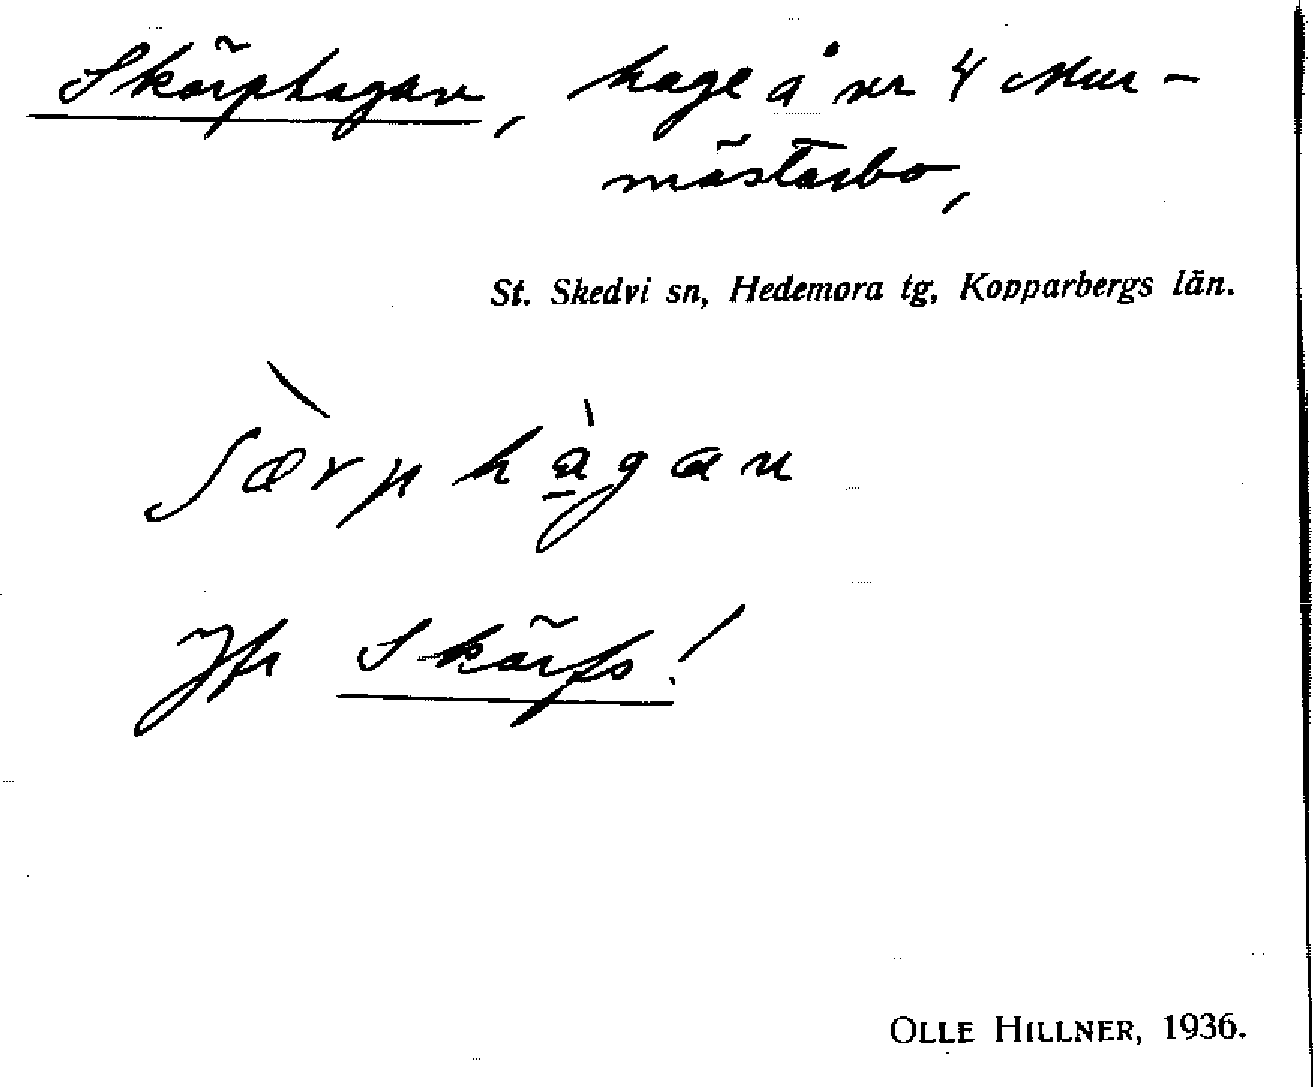 Skärphagan, hage å nr 4 Mur-
mästarbo,
St. Skedvi sn, Hedemora tg, Kopparbergs län.
ʃæ̀rphàgan
Jfr Skärfs!
OLLE HILLNER, 1936.